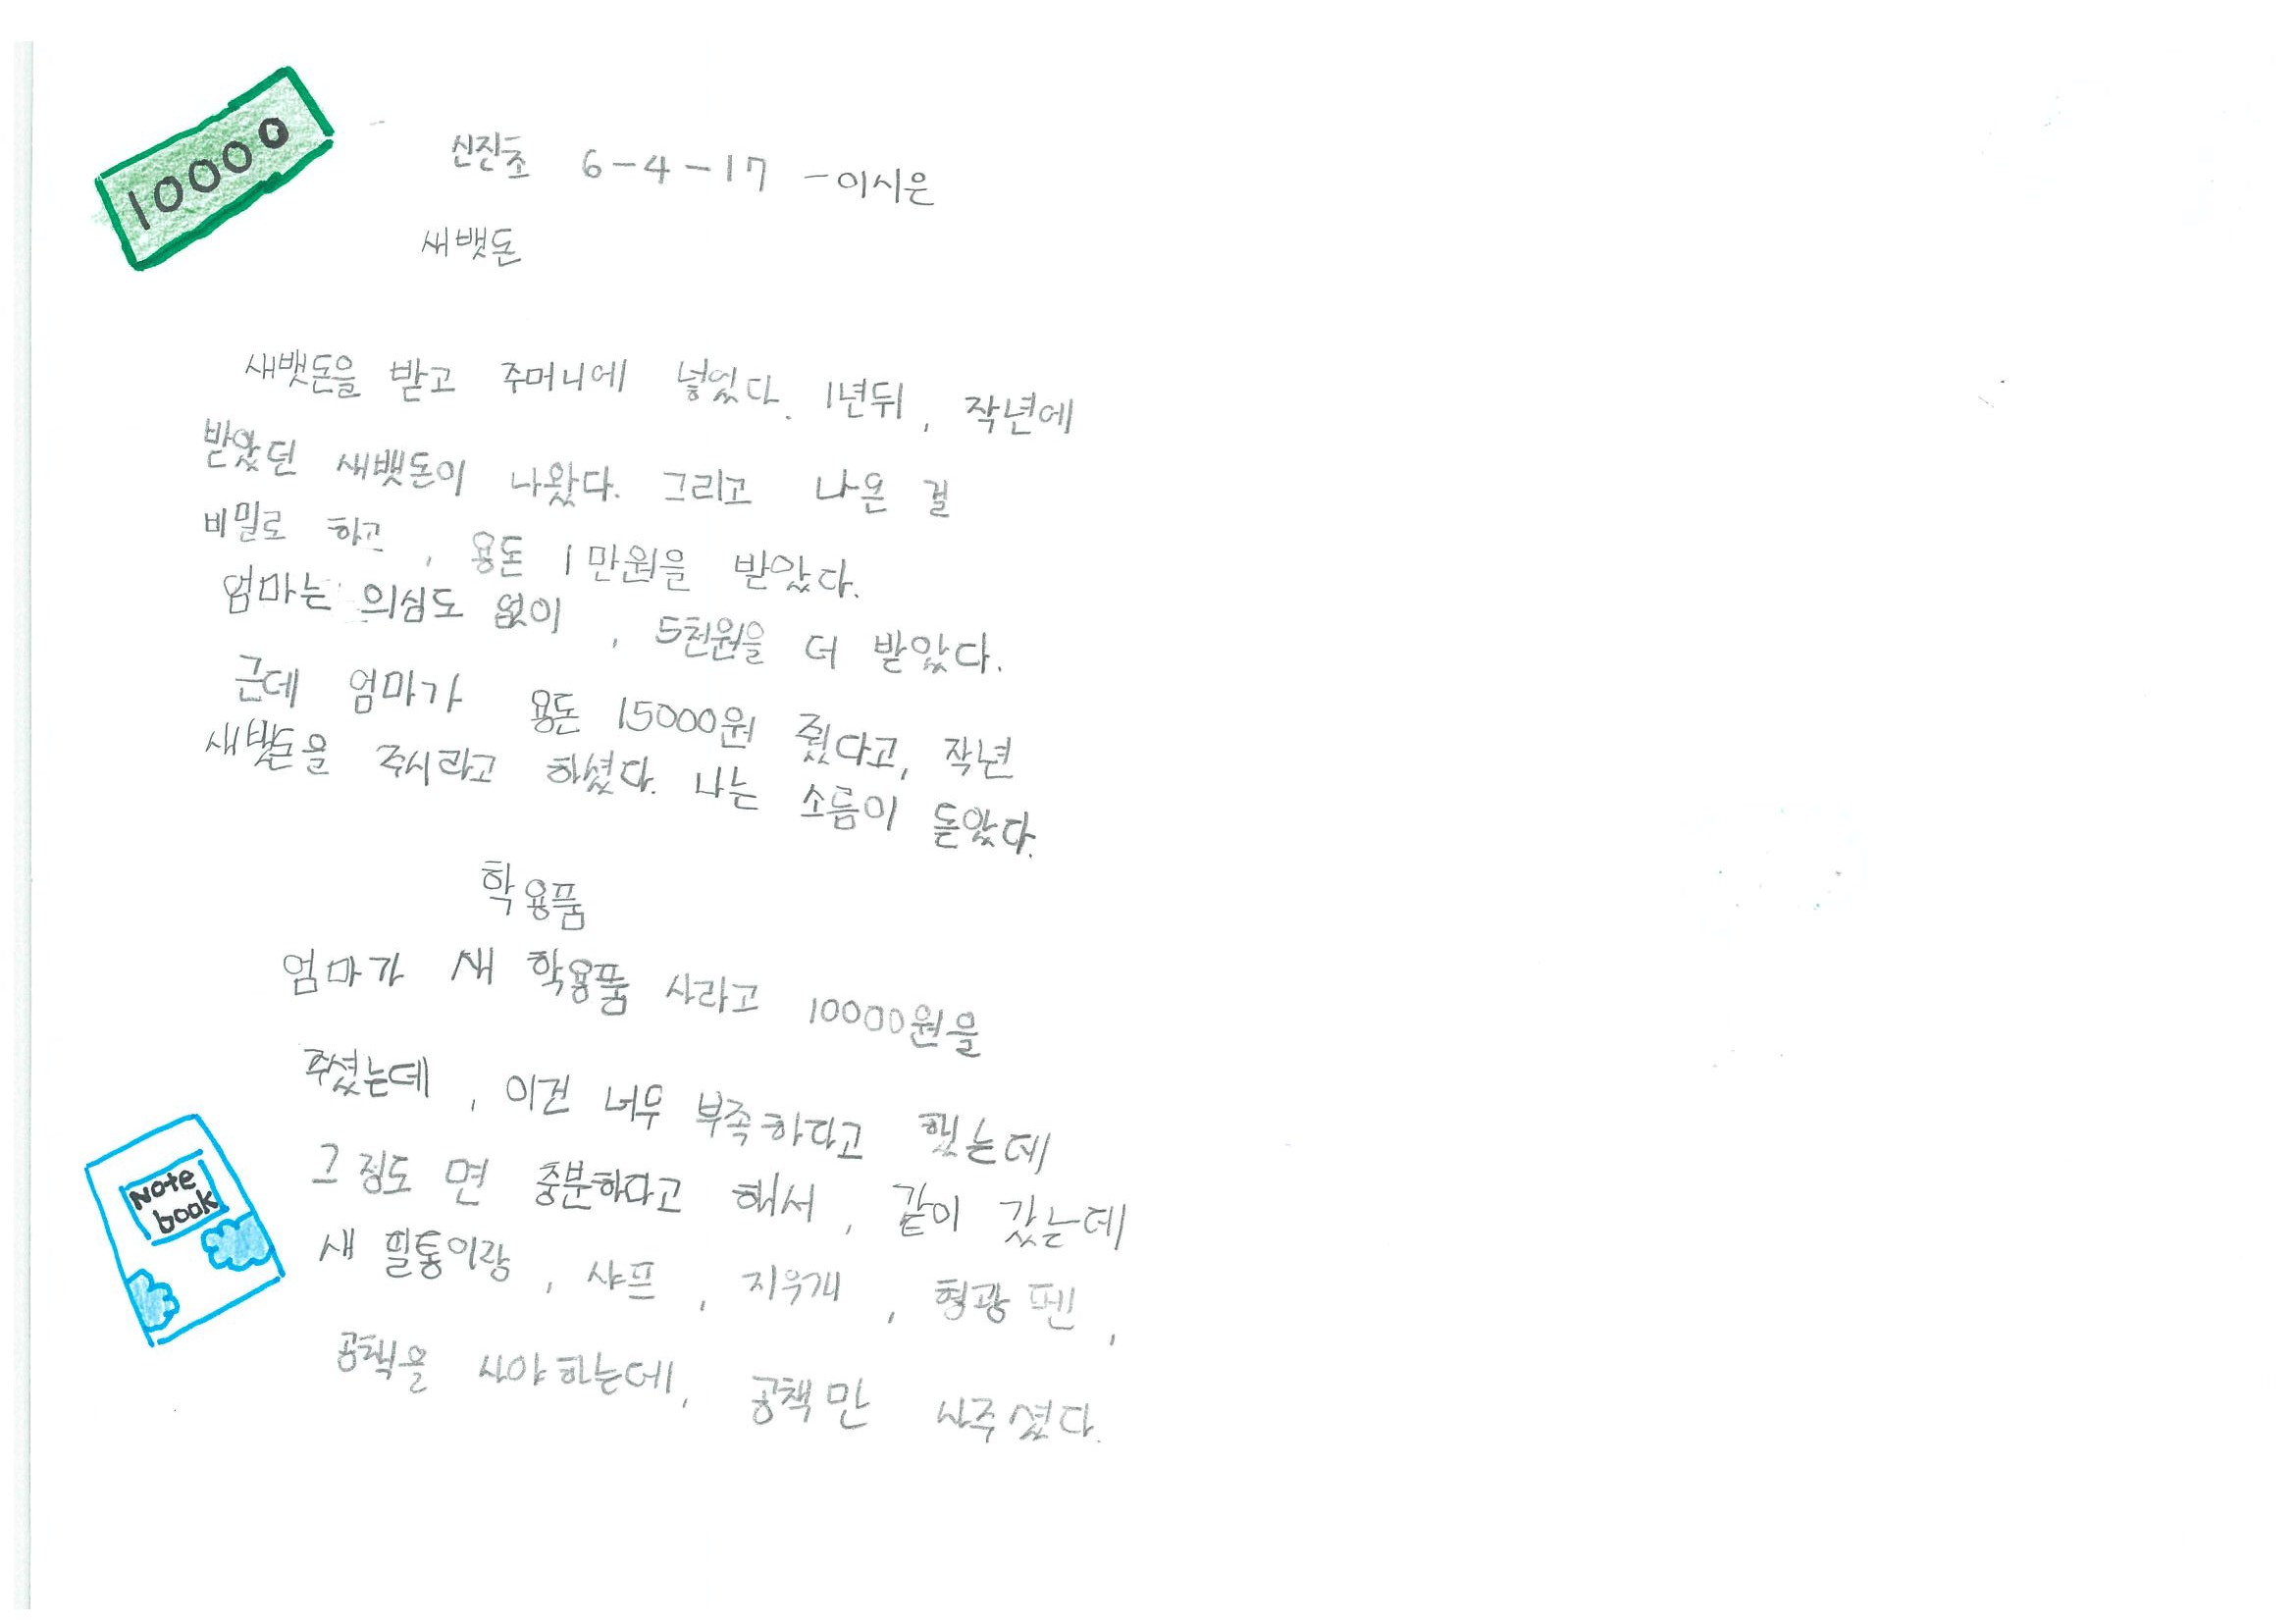 10000
신진초 6-4-17 -이시은
새뱃돈
새뱃돈을 받고 주머니에 넣었다. 1년뒤, 작년에
받았던 새뱃돈이 나왔다. 그리고 나온 걸
비밀로 하고, 용돈 1만원을 받았다.
엄마는 의심도 없이, 5천원을 더 받았다.
근데 엄마가 용돈 15000원 줬다고, 작년
새뱃돈을 주시라고 하셨다. 나는 소름이 돋았다.
학용품
엄마가 새 학용품 사라고 10000원을
주셨는데, 이건 너무 부족하다고 했는데
그 정도 면 충분하다고 해서, 같이 갔는데
새 필통이랑, 샤프, 지우개, 형광펜,
공책을 사야하는데, 공책만 사주셨다.
Note
book